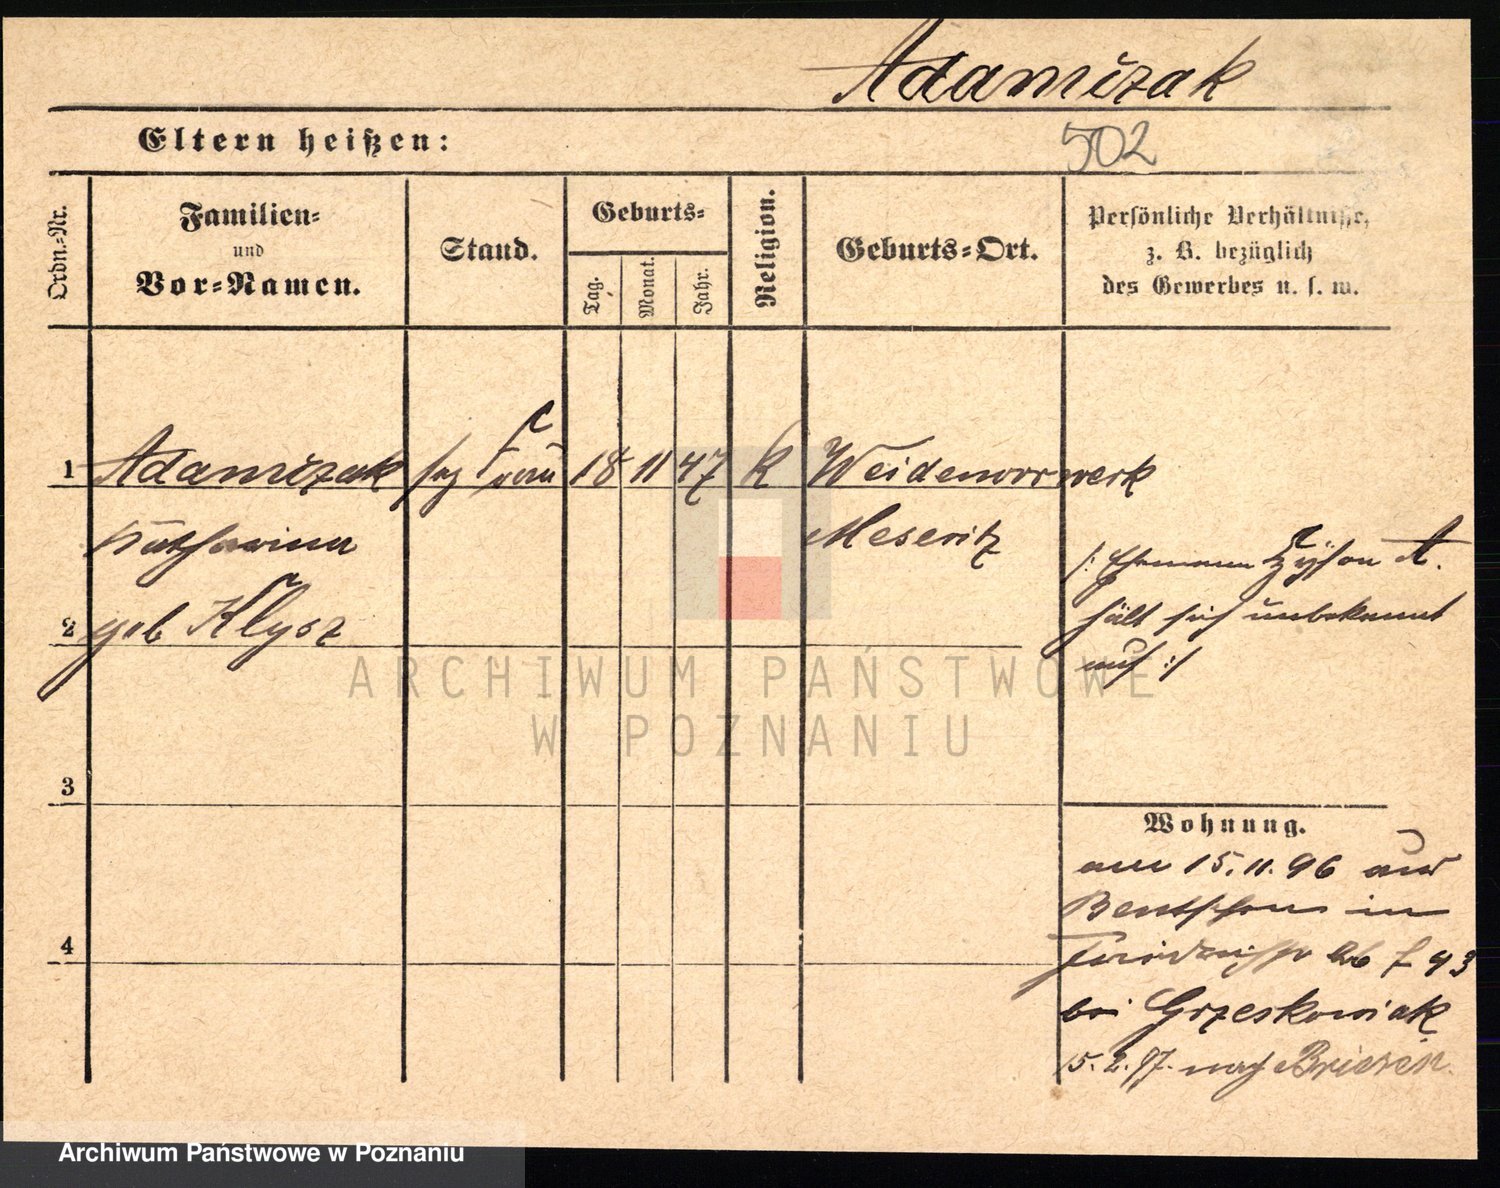 Adamczak
Eltern heißen:
502
Ordn.-Nr.
Familien-
und
Vor-Namen.
Stand.
Geburts-
Tag.
Monat.
Jahr.
Religion.
Geburts-Ort.
Persönliche Verhältnisse,
z. B. bezüglich
des Gewerbes u. s. w.
1 Adamczak Frau 18 11 47 K Weidenvorwerk
Katharina Meseritz
/: Ehemann A.
2 geb Klysz
hält sich unbekannt
auf :/
ARCHIWUM PAŃSTWOWE
W POZNANIU
3
Wohnung.
am 15.11.96 aus
Bentschen in
4
43
bei Grzeskowiak
15.2.97. nach Briesen
Archiwum Państwowe w Poznaniu